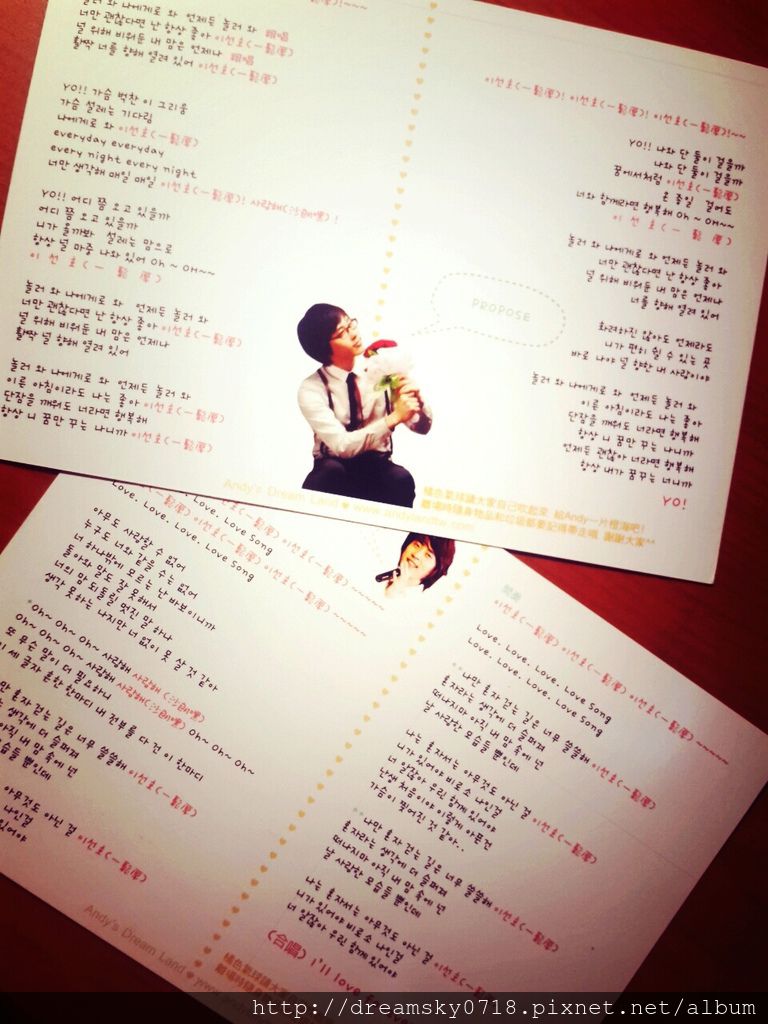 놀러 와 나에게로 와 언제든 놀러 와 跟唱
너만 괜찮다면 난 항상 좋아 이선호(一鬆厚)
널 위해 비워둔 내 맘은 언제나 跟唱
활짝 너를 향해 열려 있어 이선호(一鬆厚)
YO!! 가슴 벅찬 이 그리움
가슴 설레는 기다림
나에게로 와 이선호(一鬆厚)
everyday everyday
every night every night
너만 생각해 매일 매일 이선호(一鬆厚)! 사랑해(沙朗嘿) !
YO!! 어디 쯤 오고 있을까
어디 쯤 오고 있을까
니가 올까봐 설레는 맘으로
항상 널 마중 나와 있어 Oh ~ Oh~~
이 선 호 (一 鬆 厚 )
놀러 와 나에게로 와 언제든 놀러 와
너만 괜찮다면 난 항상 좋아 이선호(一鬆厚)
널 위해 비워둔 내 맘은 언제나
활짝 널 향해 열려 있어
놀러 와 나에게로 와 언제든 놀러 와
이른 아침이라도 나는 좋아 이선호(一鬆厚)
단잠을 깨워도 너라면 행복해
항상 니 꿈만 꾸는 나니까 이선호(一鬆厚)
이선호(一鬆厚)! 이선호(一鬆厚)! 이선호(一鬆厚)!~~
YO!! 나와 단 둘이 걸을까
나와 단 둘이 걸을까
꿈에서처럼 이선호(一鬆厚)
온 종일 걸어도
너와 함께라면 행복해 Oh ~ Oh~~
이 선 호 (一 鬆 厚 )
놀러 와 나에게로 와 언제든 놀러 와
너만 괜찮다면 난 항상 좋아
널 위해 비워둔 내 맘은 언제나
너를 향해 열려 있어
화려하진 않아도 언제라도
니가 편히 쉴 수 있는 곳
바로 나야 널 향한 내 사랑이야
놀러 와 나에게로 와 언제든 놀러 와
이른 아침이라도 나는 좋아
단잠을 깨워도 너라면 행복해
항상 니 꿈만 꾸는 나니까
언제든 괜찮아 너라면 행복해
항상 내가 꿈꾸는 너니까
YO!
PROPOSE
橘色氣球請大家自己吹起來 給Andy一片橙海吧!
離場時隨身物品和垃圾都要記得帶走哦 謝謝大家^^
Andy's Dream Land ♥ www.andylandtw.com
Love. Love. Love. Love Song
Love. Love. Love. Love Song
이선호(一鬆厚) 이선호(一鬆厚) 이선호(一鬆厚) ~~~~~
아무도 사랑할 수 없어
누구도 너와 같을 수는 없어
너 하나밖에 모르는 난 바보이니까
돌아와 말도 잘 못해서
너의 맘 되돌릴 멋진 말 하나
생각 못하는 나지만 너 없이 못 살 것 같아
Oh~ Oh~ Oh~ 사랑해 사랑해 (沙朗嘿)
Oh~ Oh~ Oh~ 사랑해 사랑해(沙朗嘿)
또 무슨 말이 더 필요하니
이 세 글자 흔한 한마디 내 전부를 다 건 이 한마디 Oh~ Oh~ Oh~
나만 혼자 걷는 길은 너무 쓸쓸해 이선호(一鬆厚)
는 생각에 더 슬퍼져
아직 내 맘 속에 넌
모습들 뿐인데
아무것도 아닌 걸 이선호(一鬆厚)
나인걸
있어야
이선호(一鬆厚) 이선호(一鬆厚) 이선호(一鬆厚) ~~~~~
Love. Love. Love. Love Song
Love. Love. Love. Love Song
나만 혼자 걷는 길은 너무 쓸쓸해 이선호(一鬆厚)
혼자라는 생각에 더 슬퍼져
떠나지마 아직 내 맘 속에 넌
날 사랑한 모습들 뿐인데
나는 혼자서는 아무것도 아닌 걸 이선호(一鬆厚)
니가 있어야 비로소 나인걸
너 알잖아 우린 함께 있어야
난생 처음이야 이렇게 아픈건
가슴이 찢어진 것 같아..
나만 혼자 걷는 길은 너무 쓸쓸해 이선호(一鬆厚)
혼자라는 생각에 더 슬퍼져
떠나지마 아직 내 맘 속에 넌
날 사랑한 모습들 뿐인데
나는 혼자서는 아무것도 아닌 걸 이선호(一鬆厚)
니가 있어야 비로소 나인걸
너 알잖아 우린 함께 있어야
(合唱) I'll love
Andy's Dream Land ♥
橘色氣球請大家
離場時隨
http://dreamsky0718.pixnet.net/album